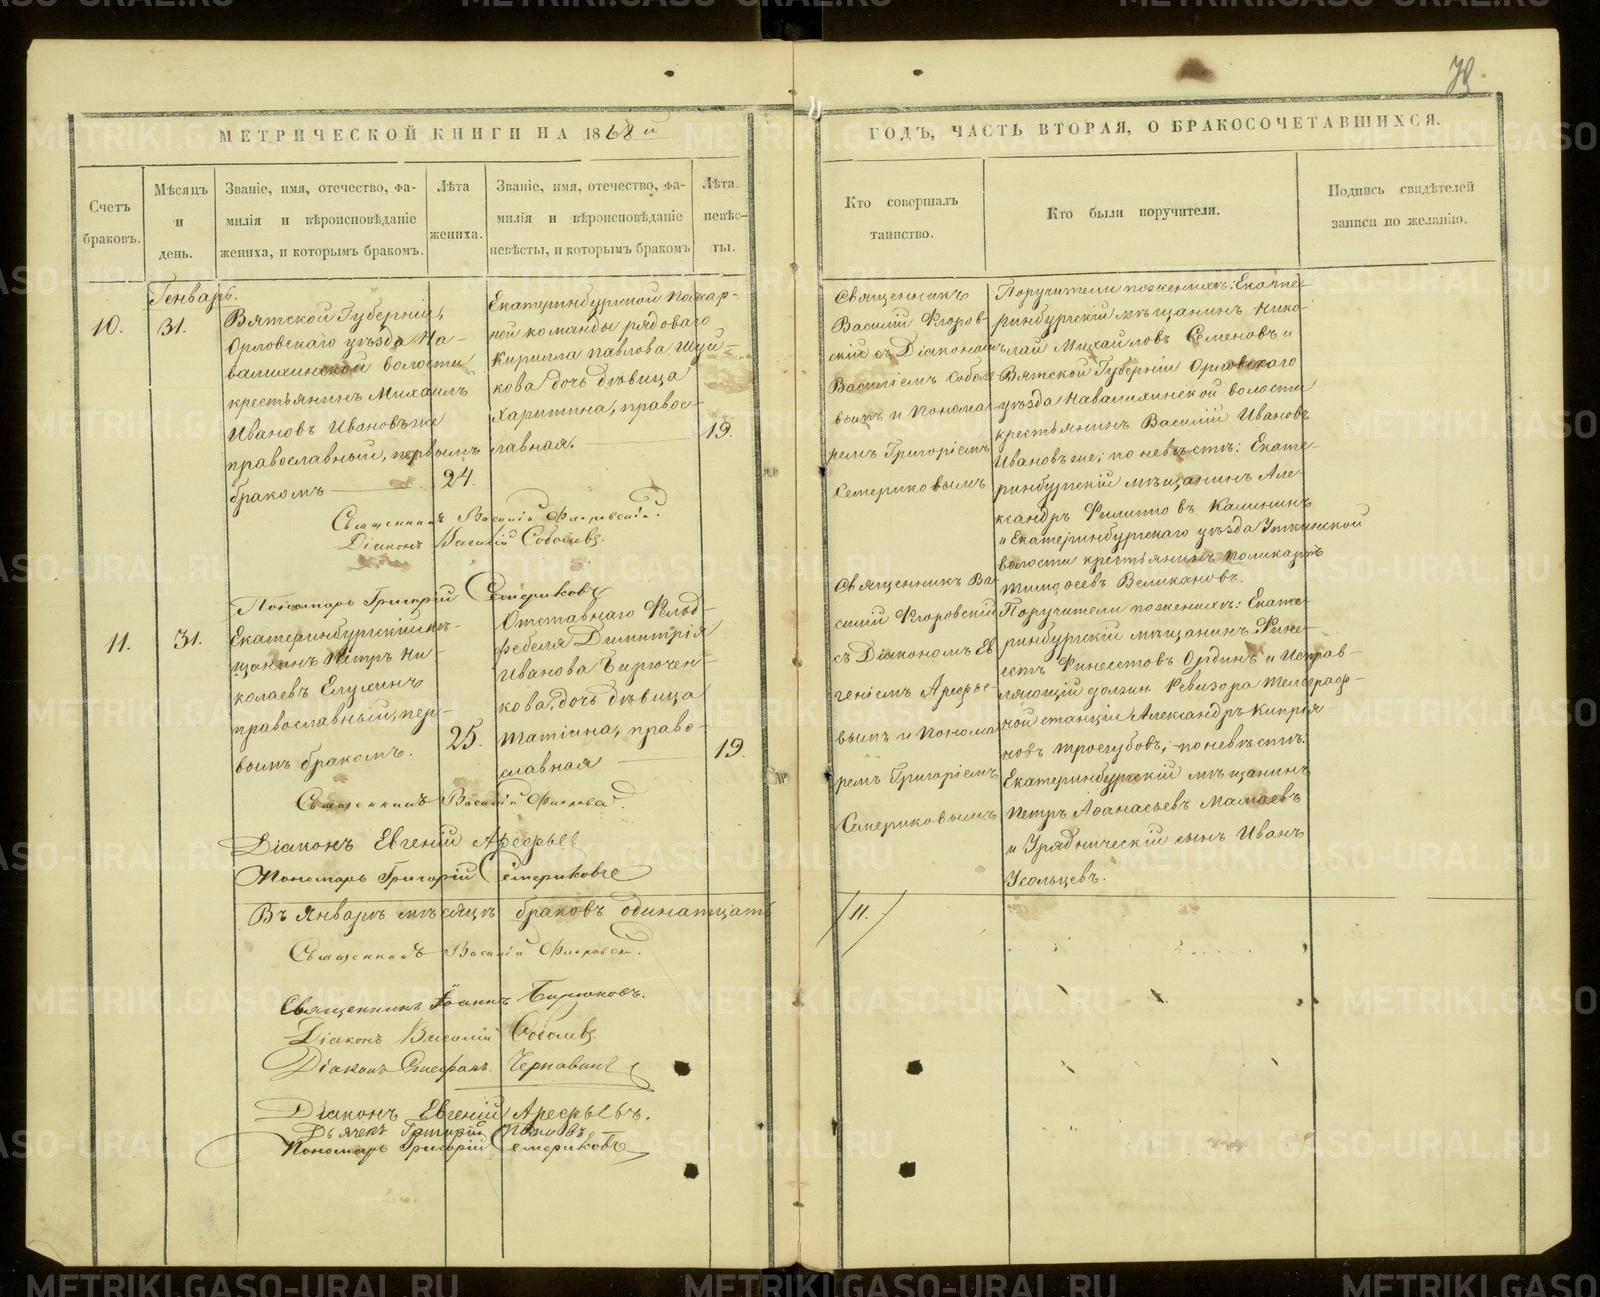 МЕТРИЧЕСКОЙ КНИГИ НА 1868й
ГОДЪ, ЧАСТЬ ВТОРАЯ, О БРАКОСОЧЕТАВШИХСЯ.
Счетъ
браковъ.
Мѣсяцъ
и
день.
Званіе, имя, отечество, фа-
милія и вѣроисповѣданіе
жениха, и которымъ бракомъ.
Лѣта
жениха.
Званіе, имя, отечество, фа-
милія и вѣроисповѣданіе
невѣсты, и которымъ бракомъ
Лѣта
невѣс-
ты.
Кто совершалъ
таинство.
Кто были поручители.
Подпись свидѣтелей
записи по желанію.
Генварь.
10.
31.
Вятской Губерніи,
Орловскаго уѣзда На-
валихинской волости
крестьянинъ Михаилъ
Ивановъ Ивановъ же
православный, первымъ
бракомъ
24.
Екатеринбургской Пожар-
ной команды рядоваго
Кирилла Павлова Шуй-
кова дочь дѣвица
Харитина, правос-
лавная.
19.
Священникъ
Василій Флоров-
скій съ Діакономъ
Василіемъ Соболе-
вымъ и Понома-
ремъ Григоріемъ
Семериковымъ
Поручители по женихѣ: Екате-
ринбургскій мѣщанинъ Нико-
лай Михайловъ Семеновъ и
Вятской Губерніи Орловскаго
уѣзда Навалихинской волости
крестьянинъ Василій Ивановъ
Ивановъ же; по невѣстѣ: Екате-
ринбургскій мѣщанинъ Але-
ксандръ Филипповъ Калининъ
и Екатеринбургскаго уѣзда Уткинской
волости крестьянинъ Поликарпъ
Тимофеевъ Великановъ.
Священникъ Василій Флоровскій.
Діаконъ Василій Соболевъ.
Пономарь Григорій Семериковъ
11.
31.
Екатеринбургскій мѣ-
щанинъ Петръ Ни-
колаевъ Елухинъ
православный, пер-
вымъ бракомъ.
25.
Отставнаго Фельд-
фебеля Димитрія
Иванова Бирючен-
кова, дочь дѣвица
Татіана, право-
славная
19
Священникъ Ва-
силій Флоровскій
съ Діакономъ Ев-
геніемъ Арефье-
вымъ и Понома-
ремъ Григоріемъ
Семериковымъ
Поручители по женихѣ: Екате-
ринбургскій мѣщанинъ Фине-
естъ Финеестовъ Ордин и Исправ-
ляющій должн. Ревизора Телеграф-
ной станціи Александръ Кипрія-
новъ Трегубовъ; по невѣстѣ:
Екатеринбургскій мѣщанинъ
Петръ Афанасьевъ Мамаевъ
и Урядническій сынъ Иванъ
Усольцевъ.
Священникъ Василій
Діаконъ Евгеній Арефьев
Пономарь Григорій Семериковъ
Въ Январѣ мѣсяцѣ браковъ одинатцать
/11./
Священникъ Василій Флоровскій.
Священникъ Іоаннъ Бирюковъ.
Діаконъ Василій Соболевъ.
Діаконъ Стефанъ Чернавинъ
Діаконъ Евгеній Арефьевъ.
Дьячекъ Григорій Поповъ
Пономарь Григорій Семериковъ
METRIKI.GASO-URAL.RU